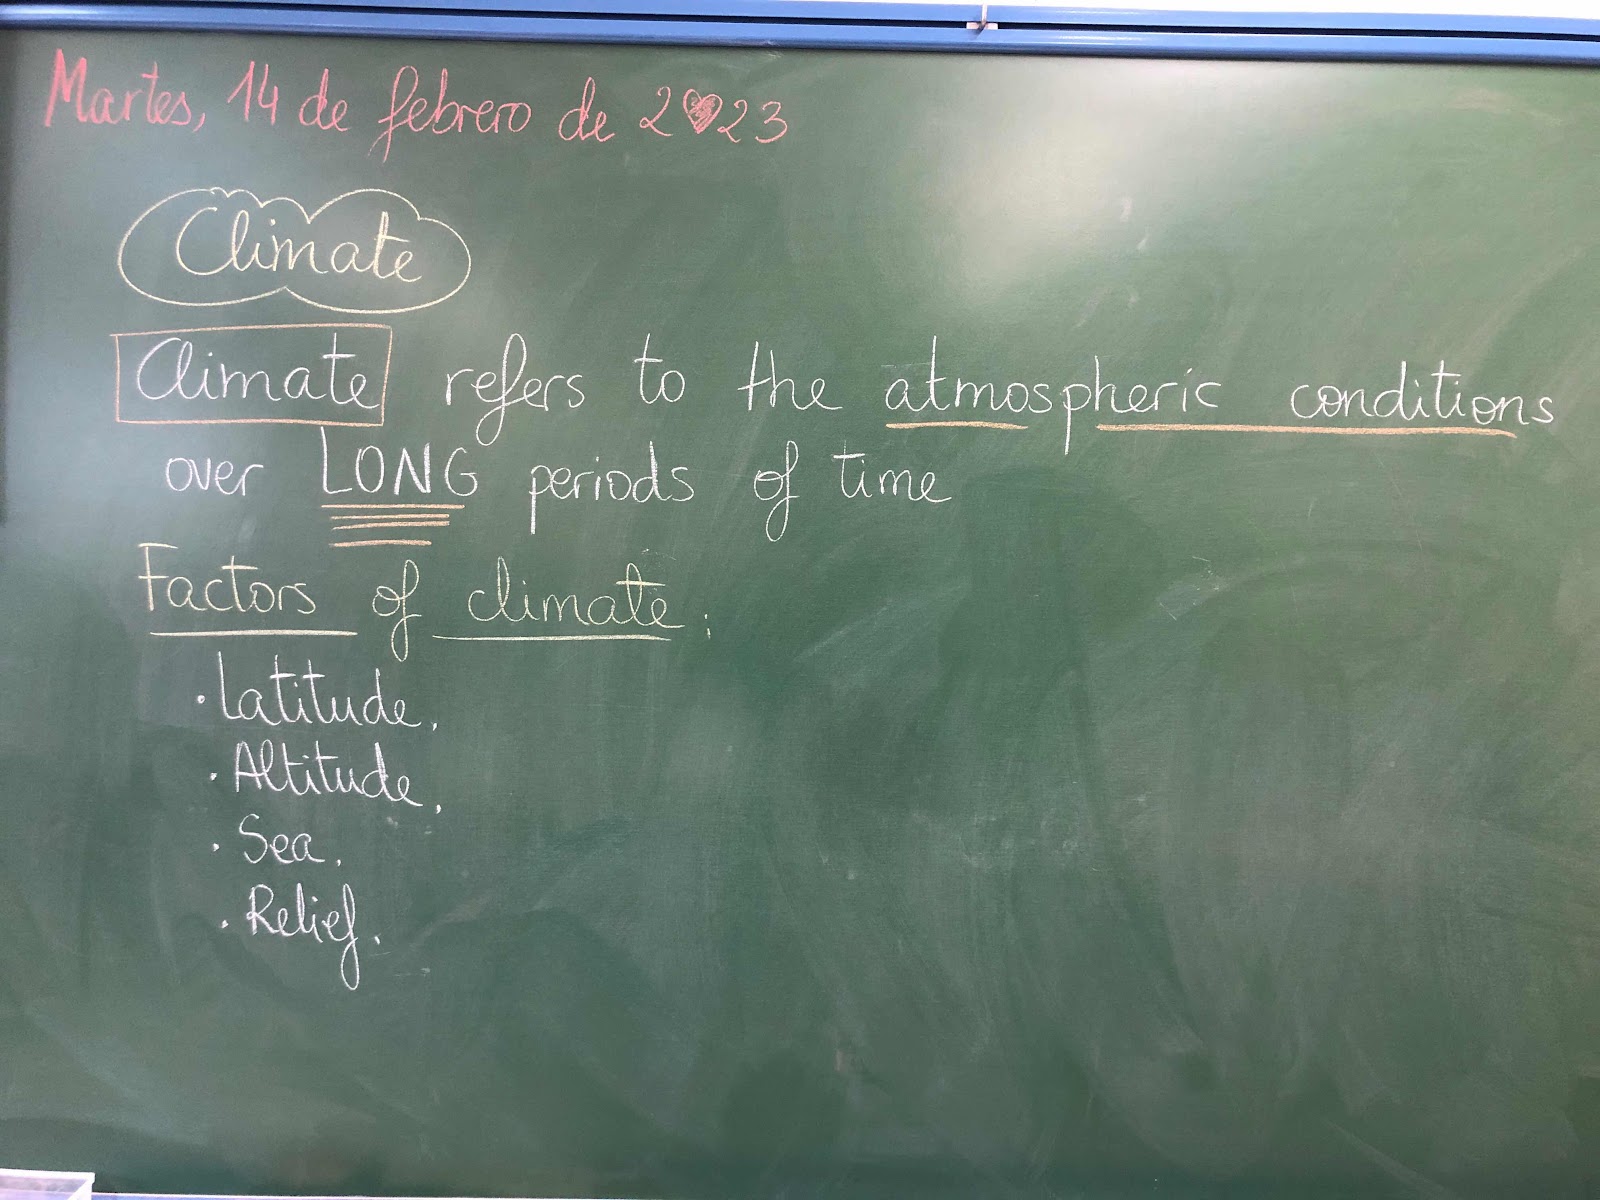 Martes, 14 de febrero de 2♥23
Climate
Climate refers to the atmospheric conditions
over LONG periods of time
Factors of climate:
· Latitude.
· Altitude.
· Sea.
· Relief.